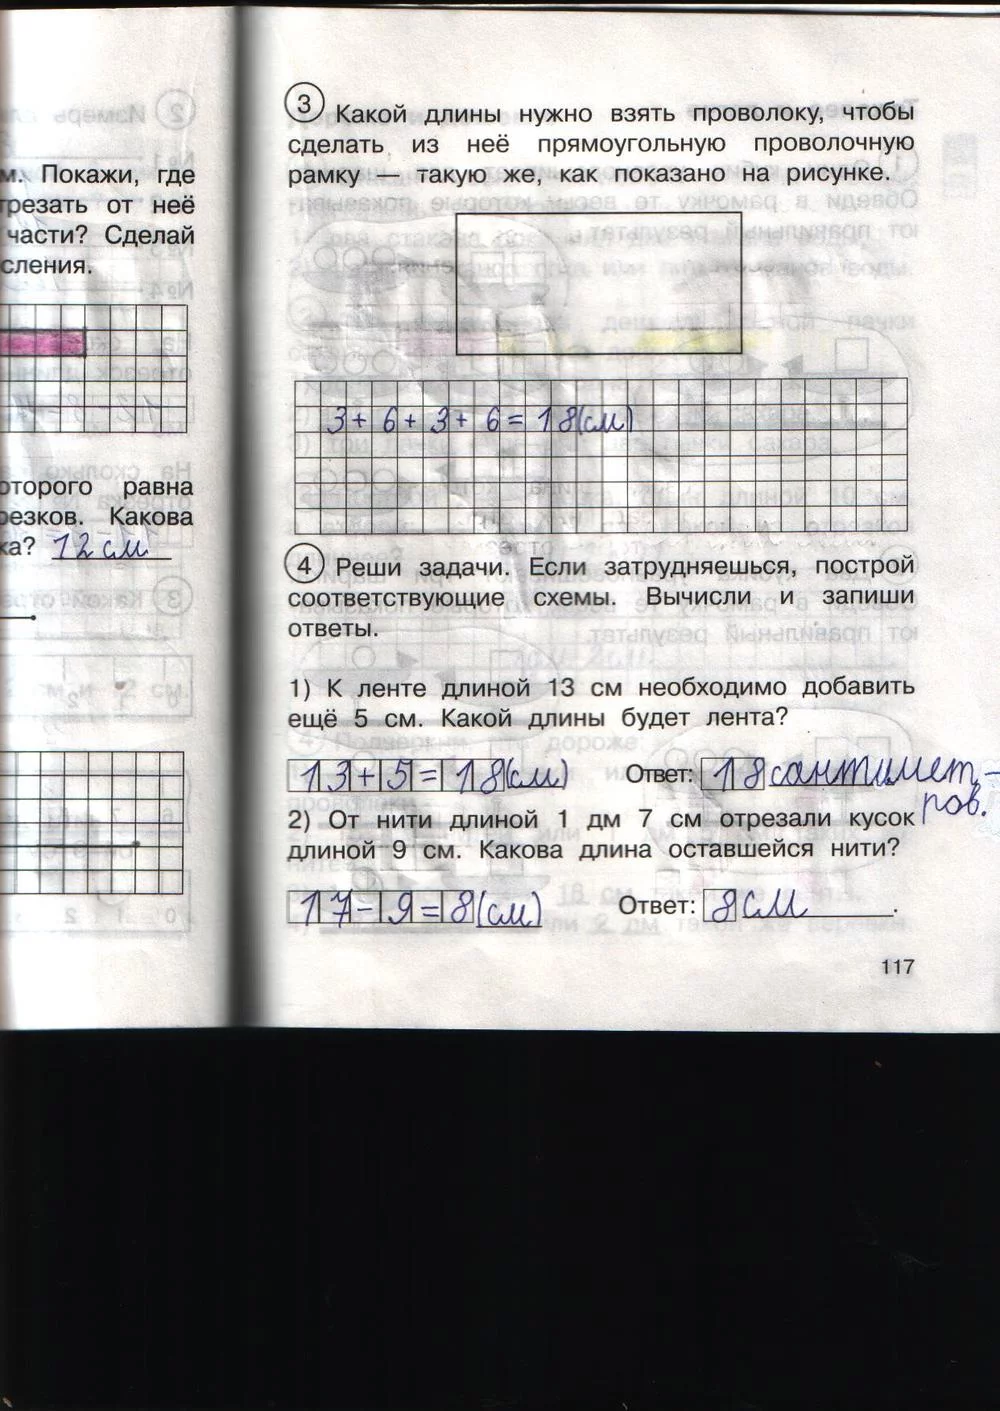 м. Покажи, где
трезать от неё
части? Сделай
сления.
оторого равна
резков. Какова
ка? 12 см
3 Какой длины нужно взять проволоку, чтобы
сделать из неё прямоугольную проволочную
рамку — такую же, как показано на рисунке.
3 + 6 + 3 + 6 = 18(см)
4 Реши задачи. Если затрудняешься, построй
соответствующие схемы. Вычисли и запиши
ответы.
1) К ленте длиной 13 см необходимо добавить
ещё 5 см. Какой длины будет лента?
13+5=18(см) Ответ: 18 сантимет-
ров.
2) От нити длиной 1 дм 7 см отрезали кусок
длиной 9 см. Какова длина оставшейся нити?
17-9=8(см) Ответ: 8 см.
117